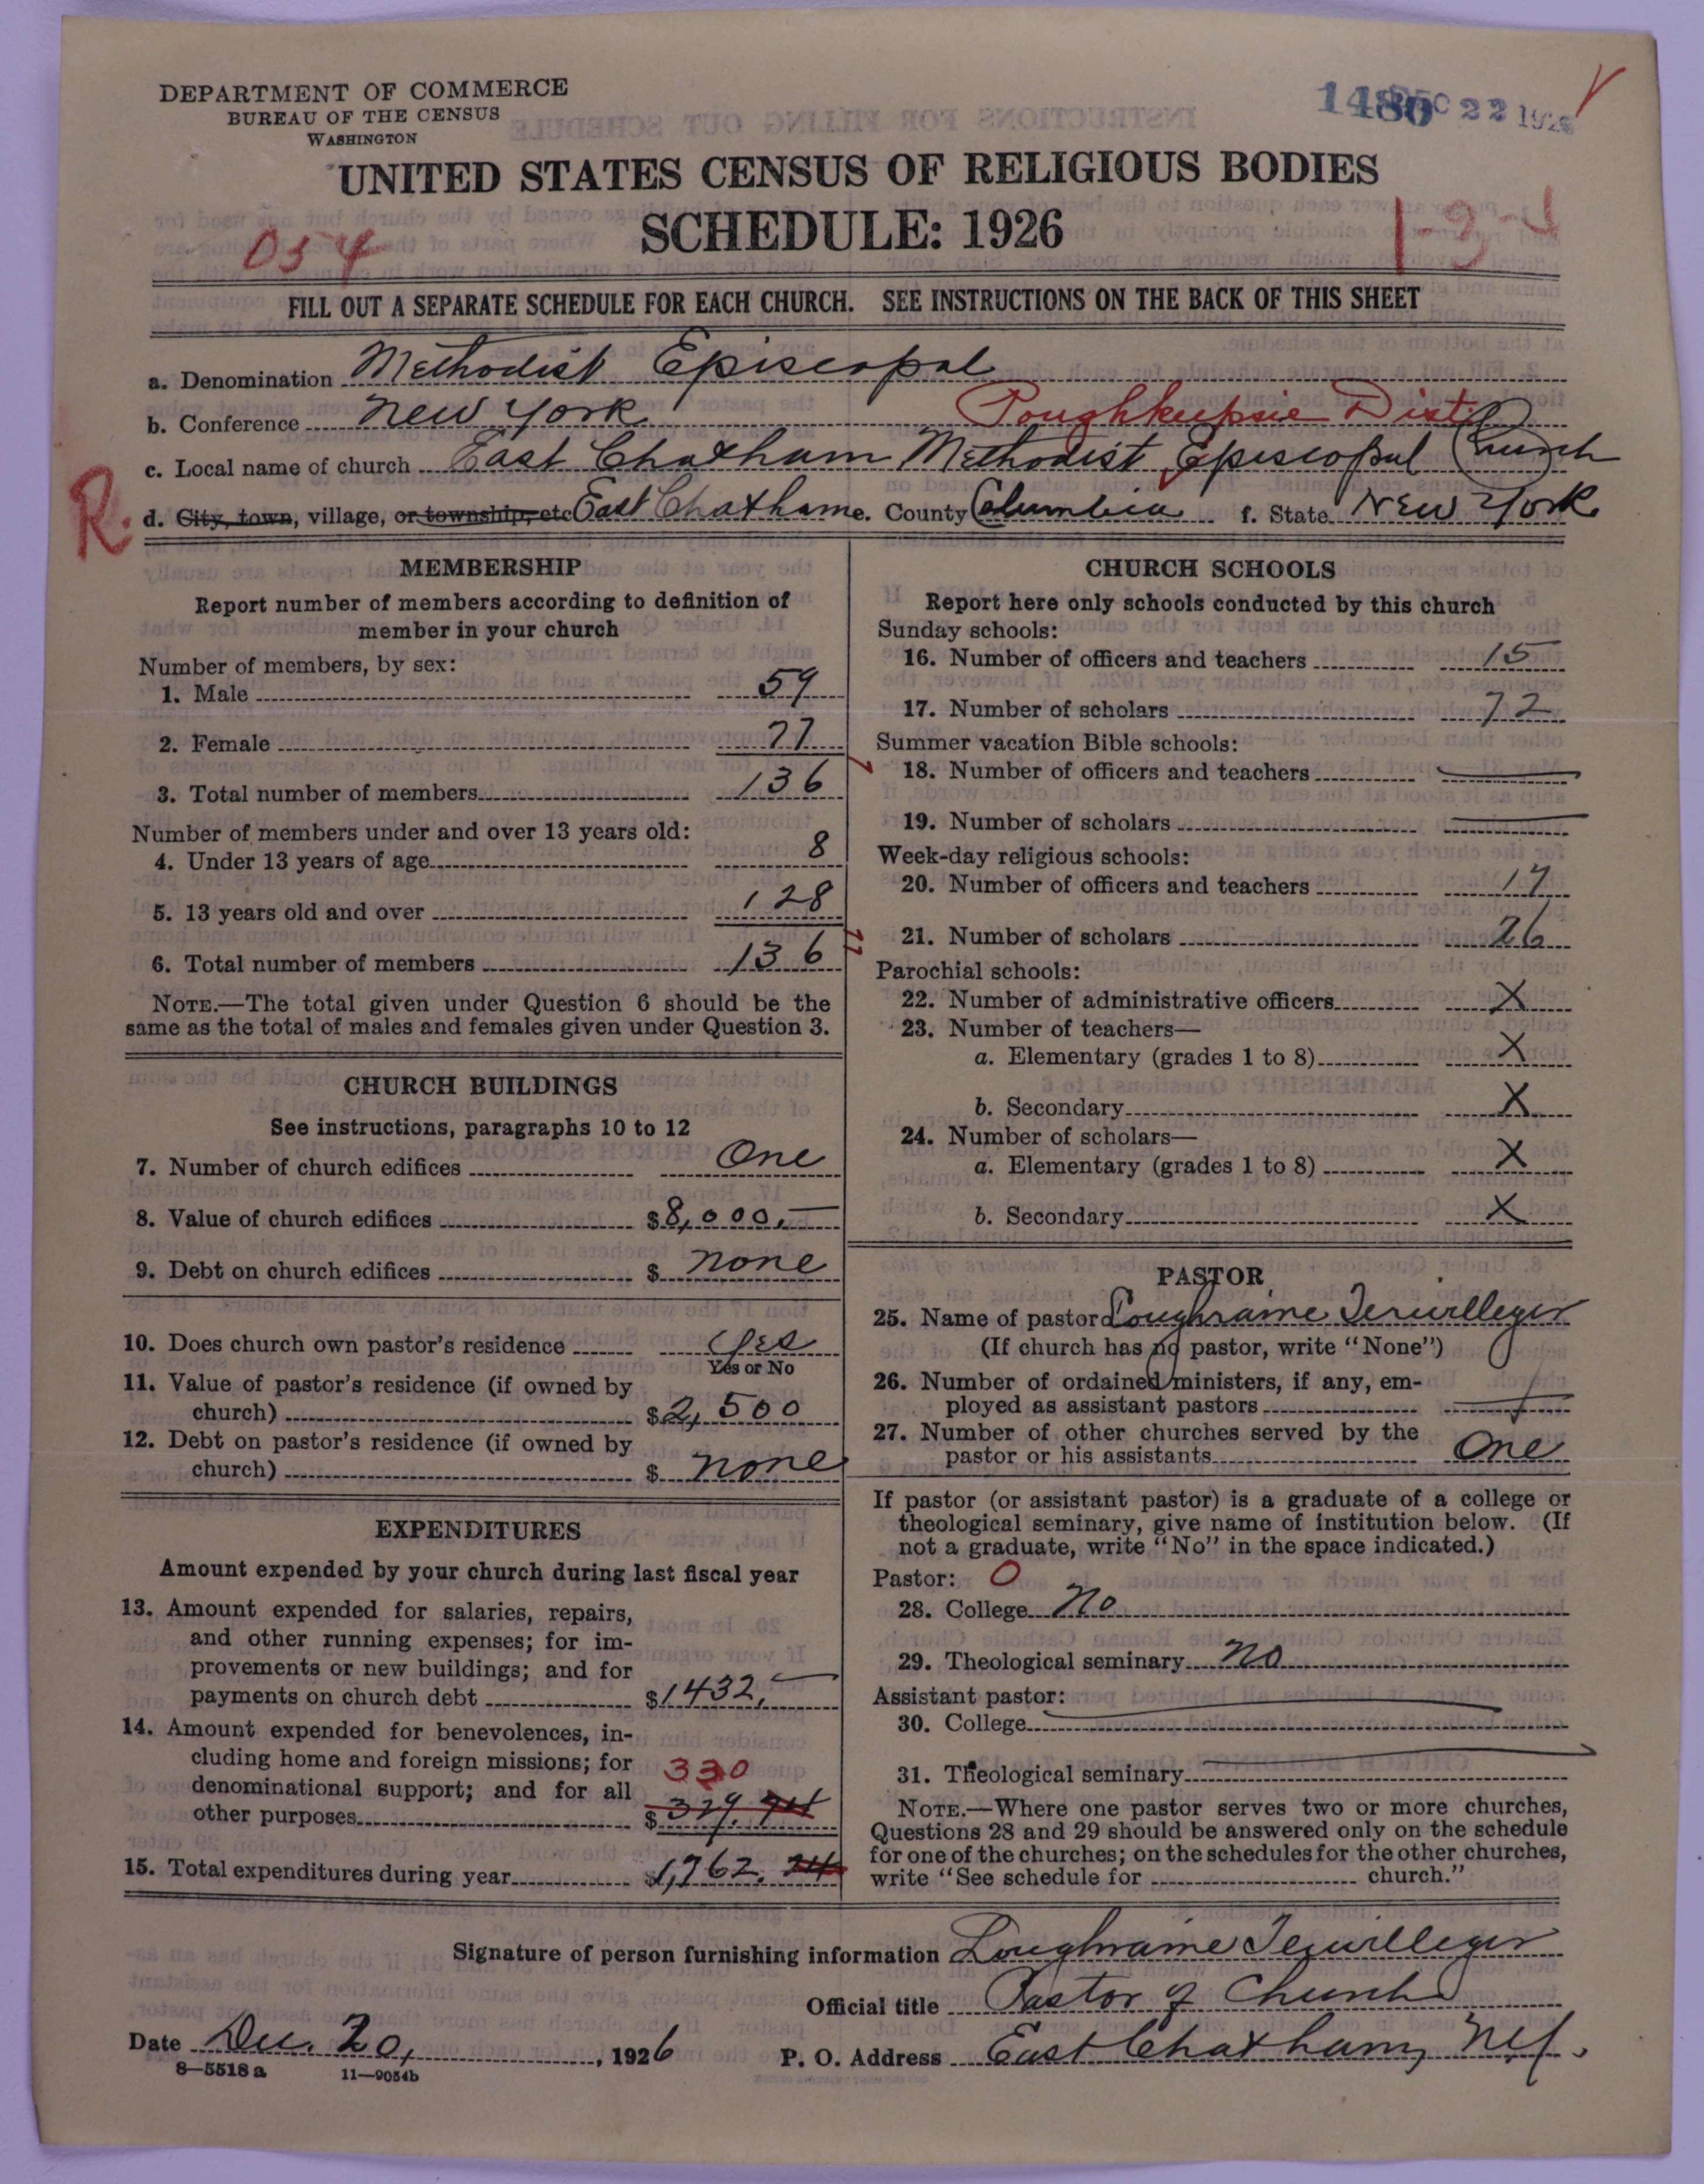 DEPARTMENT OF COMMERCE
BUREAU OF THE CENSUS
WASHINGTON
22 1926
UNITED STATES CENSUS OF RELIGIOUS BODIES
SCHEDULE: 1926
054
1-3-4
FILL OUT A SEPARATE SCHEDULE FOR EACH CHURCH. SEE INSTRUCTIONS ON THE BACK OF THIS SHEET
a. Denomination Methodist Episcopal
b. Conference New York Poughkeepsie Dist
c. Local name of church East Chatham Methodist Episcopal Church
R. d. City, town, village, or township, etc East Chatham e. County Columbia f. State New York
MEMBERSHIP
Report number of members according to definition of
member in your church
Number of members, by sex:
1. Male 59
2. Female 77
3. Total number of members 136
Number of members under and over 13 years old:
4. Under 13 years of age 8
5. 13 years old and over 128
6. Total number of members 136
NOTE.—The total given under Question 6 should be the
same as the total of males and females given under Question 3.
CHURCH BUILDINGS
See instructions, paragraphs 10 to 12
7. Number of church edifices One
8. Value of church edifices $8,000.—
9. Debt on church edifices $ none
10. Does church own pastor's residence Yes
Yes or No
11. Value of pastor's residence (if owned by
church) $2,500
12. Debt on pastor's residence (if owned by
church) $ none
EXPENDITURES
Amount expended by your church during last fiscal year
13. Amount expended for salaries, repairs,
and other running expenses; for im-
provements or new buildings; and for
payments on church debt $1432.—
14. Amount expended for benevolences, in-
cluding home and foreign missions; for
330
denominational support; and for all
other purposes $329.
15. Total expenditures during year $1,762.
CHURCH SCHOOLS
Report here only schools conducted by this church
Sunday schools:
16. Number of officers and teachers 15
17. Number of scholars 72
Summer vacation Bible schools:
18. Number of officers and teachers —
19. Number of scholars —
Week-day religious schools:
20. Number of officers and teachers
21. Number of scholars 26
Parochial schools:
22. Number of administrative officers X
23. Number of teachers—
a. Elementary (grades 1 to 8) X
b. Secondary X
24. Number of scholars—
a. Elementary (grades 1 to 8) X
b. Secondary X
PASTOR
25. Name of pastor Loughraine Terwilleger
(If church has no pastor, write "None")
26. Number of ordained ministers, if any, em-
ployed as assistant pastors
27. Number of other churches served by the
pastor or his assistants One
If pastor (or assistant pastor) is a graduate of a college or
theological seminary, give name of institution below. (If
not a graduate, write "No" in the space indicated.)
Pastor: 0
28. College No
29. Theological seminary No
Assistant pastor:
30. College —
31. Theological seminary —
NOTE.—Where one pastor serves two or more churches,
Questions 28 and 29 should be answered only on the schedule
for one of the churches; on the schedules for the other churches,
write "See schedule for church."
Signature of person furnishing information Loughraine Terwilleger
Official title Pastor of Church
Date Dec. 20, 1926 P. O. Address East Chatham, N.Y.
8—5518 a 11—9054b